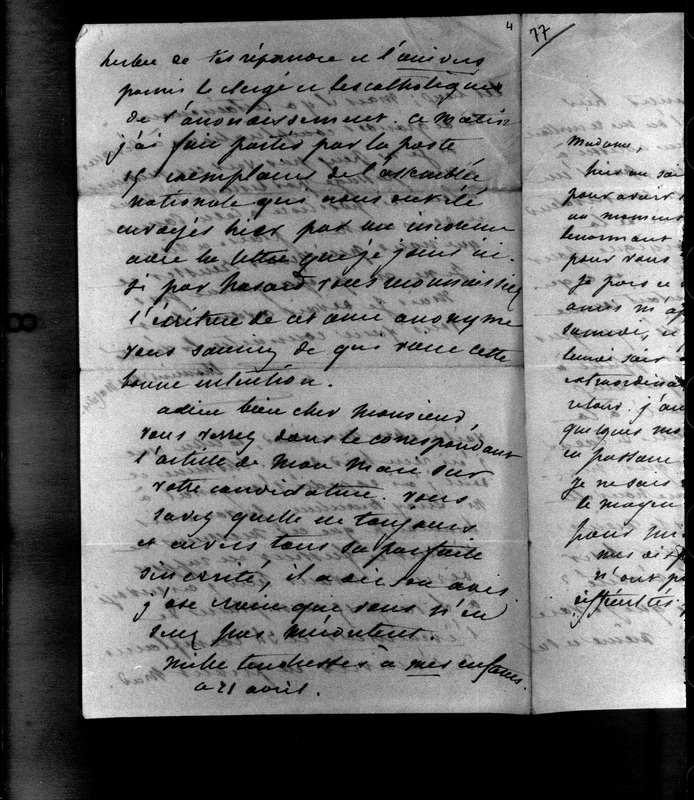 4
de les répandre et l'univers
parmi le clergé et les catholiques
de l'arrondissement. Ce matin
j'ai fait partir par la poste
15 exemplaires de l'assemblée
nationale que nous ont été
envoyés hier par un inconnu
avec la lettre que je joins ici.
Si par hasard vous reconnaissiez
l'écriture de cet ami anonyme
vous saurez de qui vient cette
bonne intention.
adieu bien cher Monsieur,
vous verrez dans le correspondant
l'article de mon mari sur
votre candidature. Vous
savez quelle est toujours
et envers tous sa parfaite
sincérité, il a dit son avis
j'ose croire que vous n'en
serez pas mécontent.
mille tendresses à mes enfans.
21 avril.
77
Madame,
hier au soi
pour avoir
au moment
Lenormant
pour vous
Je pars ce
amis m'a
samedi,
extraordina
retour. j'au
quelques mo
en passant
je ne sais
le moyen
pour m
mes
n'ont p
difficultés.